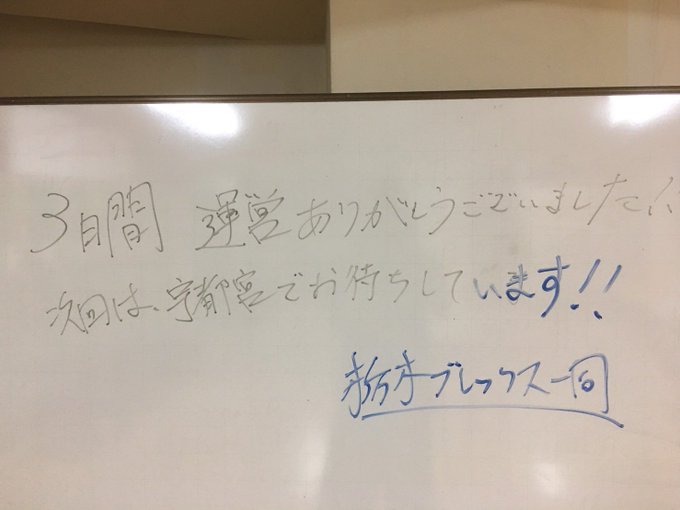 3日間 運営ありがとうございました!!
次回は、宇都宮でお待ちしています!!
栃木ブレックス一同